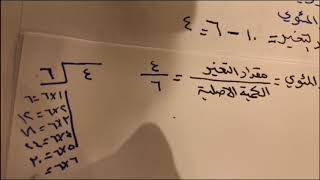 المئوي
لتغير = ١٠ - ٦ = ٤
المئوي = مقدار التغير / الكمية الاصلية = ٤ / ٦
٤ ٦
٦×١=٦
٦×٢=١٢
٦×٣=١٨
٦×٤=٢٤
٦×٥=٣٠
٦×٦=